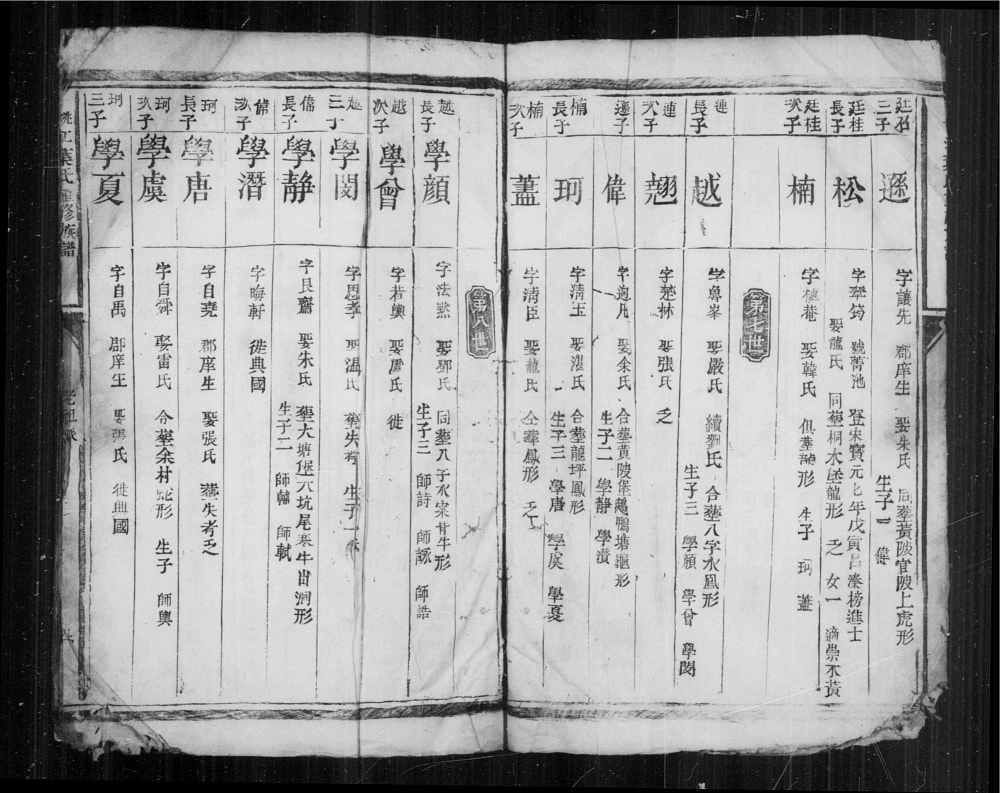 廷石三子
遜
字讓先 郡庠生 娶朱氏 同葬黃陂官陂上虎形
生子一 偉
廷桂長子
松
字翠筠 號菁池 登宋寶元七年戊寅呂溱榜進士
娶龍氏 同葬桐木逕龍形 乏 女一 適崇木黃
廷桂次子
楠
字 菴 娶韓氏 俱葬 形 生子 珂 蓋
第七世
連長子
越
字魯峯 娶嚴氏 續劉氏 合葬八字水鳳形
生子三 學顏 學曾 學閔
連次子
翹
字楚林 娶張氏 乏
遜子
偉
字逈凡 娶余氏 合葬黃陂 鴨塘龜形
生子二 學靜 學濳
楠長子
珂
字清玉 娶湛氏 合葬龍坪鳳形
生子三 學唐 學虞 學夏
楠次子
蓋
字清臣 娶龍氏 仝葬鳳形 乏
第八世
越長子
學顏
字法默 娶鄧氏 同葬八字水寀 牛形
生子三 師詩 師 師誥
越次子
學曾
字若輿 娶 氏 徙
越三子
學閔
字思孝 娶溫氏 葬失考 生子一
偉長子
學靜
字艮齋 娶朱氏 葬大塘堡 坑尾 牛 洞形
生子二 師轍 師軾
偉次子
學潛
字晦軒 徙興國
珂長子
學唐
字自堯 郡庠生 娶張氏 葬失考乏
珂次子
學虞
字自舜 娶雷氏 仝葬余村 形 生子 師輿
珂三子
學夏
字自禹 郡庠生 娶張氏 徙興國
葉氏 修族譜